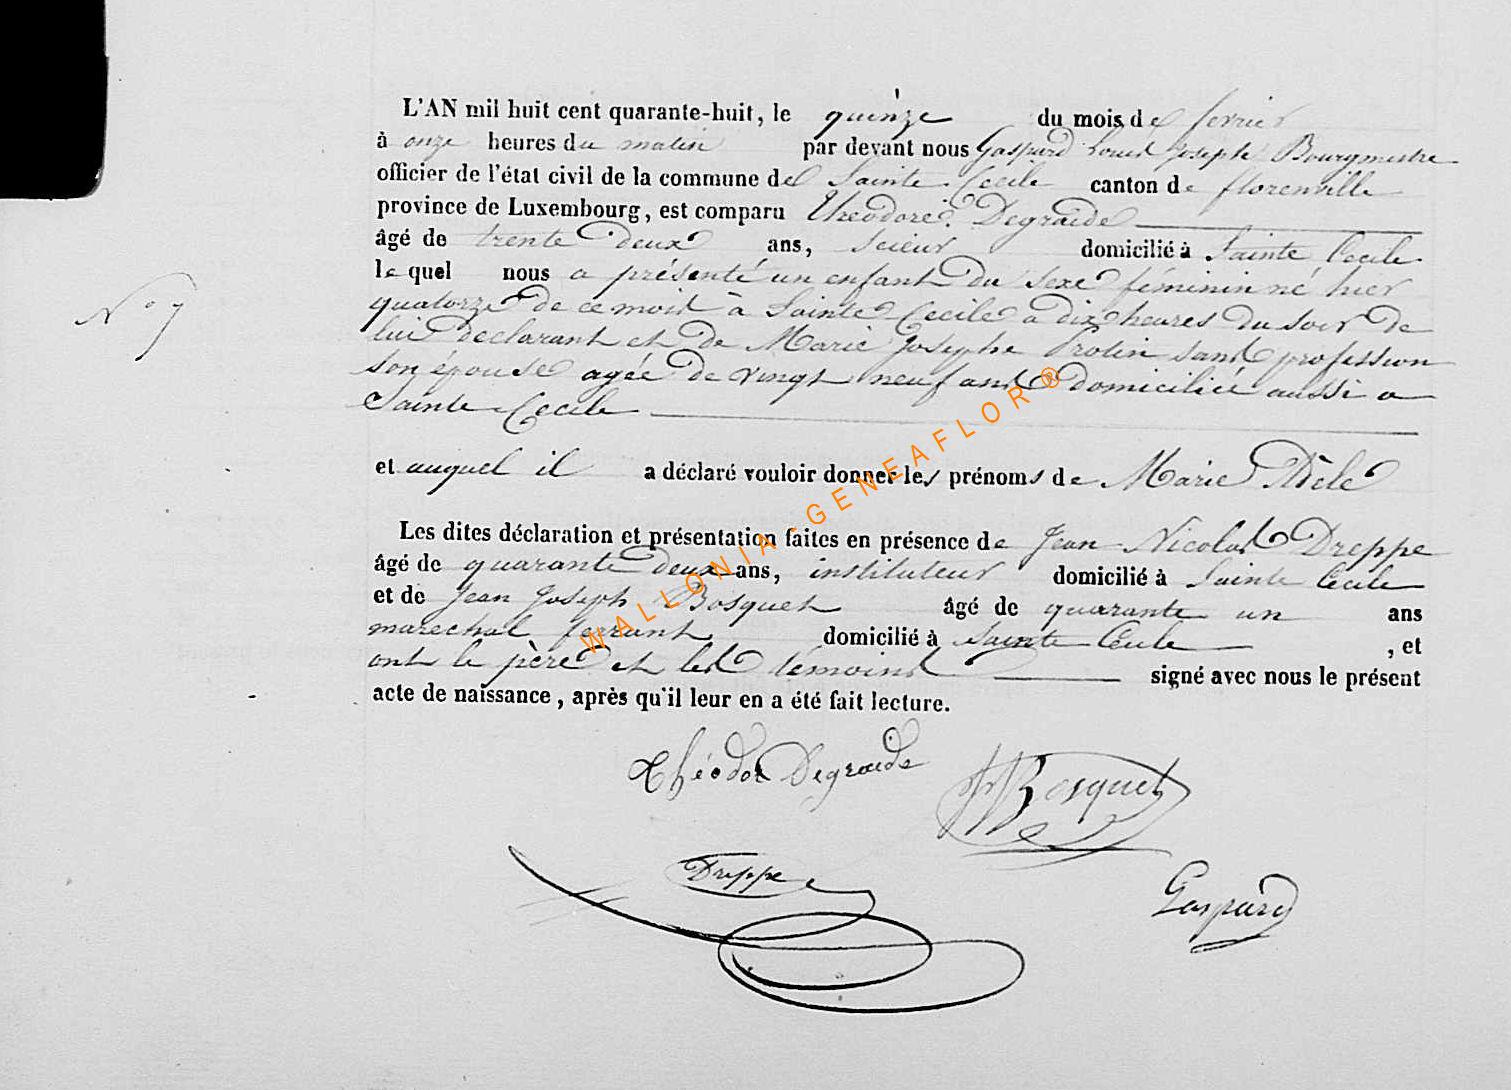 L'AN mil huit cent quarante-huit, le quinze du mois de fevrier
à onze heures du matin par devant nous Gaspard Louis Joseph Bourgmestre
officier de l'état civil de la commune de Sainte Cecile canton de florenville
province de Luxembourg, est comparu Théodore Degraide
âgé de trente deux ans, scieur domicilié à Sainte Cecile
le quel nous a présenté un enfant du sexe féminin né hier
quatorze de ce mois à Sainte Cecile a dix heures du soir de
lui declarant et de Marie Josephe Protin sans profession
son épouse agée de vingt neuf ans domiciliée aussi a
Sainte Cecile
et auquel il a déclaré vouloir donner les prénoms de Marie Adèle
Les dites déclaration et présentation faites en présence de Jean Nicolas Dreppe
âgé de quarante deux ans, instituteur domicilié à Sainte Cecile
et de Jean Joseph Bosquet âgé de quarante un ans
marechal ferrant domicilié à Sainte Cecile , et
ont le père et les témoins signé avec nous le présent
acte de naissance, après qu'il leur en a été fait lecture.
N° 7
Théodor Degraide
Bosquet
Dreppe
Gaspard
WALLONIA-GENEAFLOR®